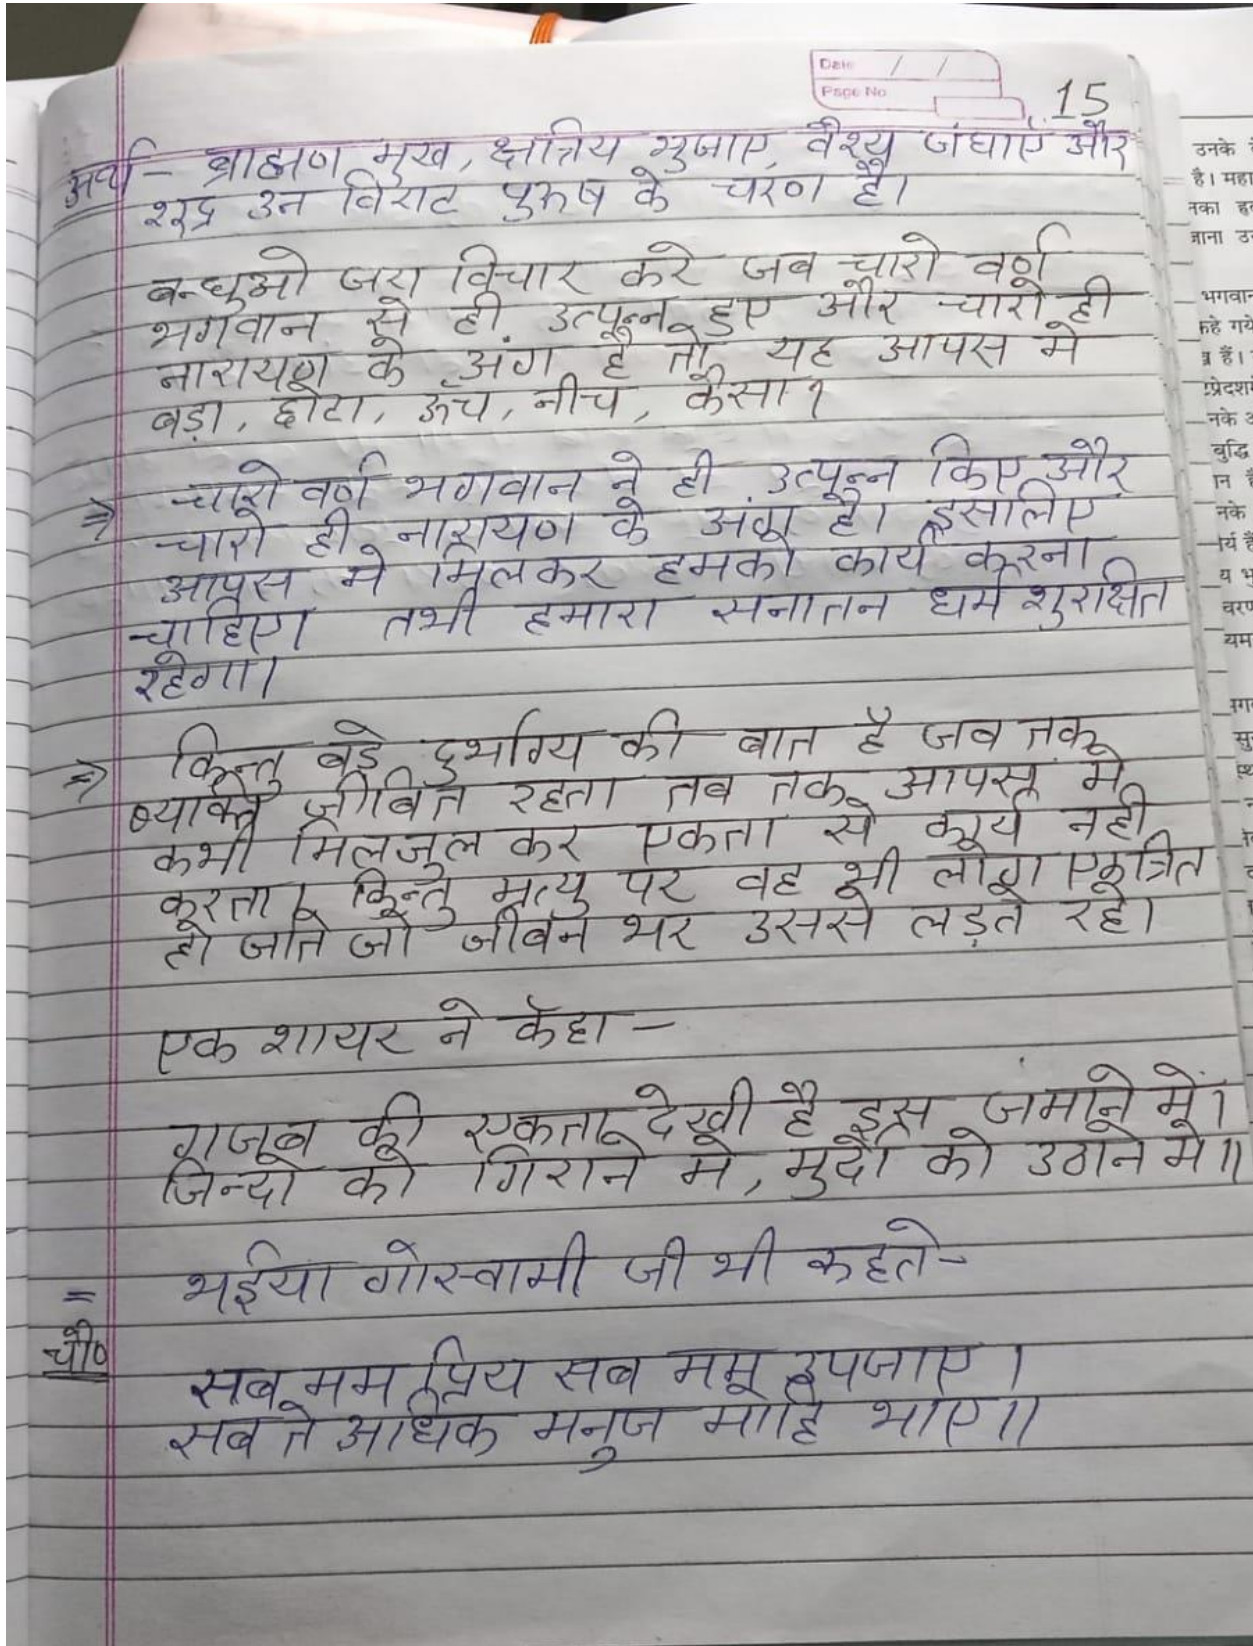 Date / /
Page No
15
अर्थ - ब्राह्मण मुख, क्षत्रिय भुजाए, वैश्य जंघाएँ और
शूद्र उन विराट पुरुष के चरण है।
बन्धुओ जरा विचार करे जब चारो वर्ण
भगवान से ही उत्पन्न हुए और चारो ही
नारायण के अंग है तो यह आपस मे
बड़ा, छोटा, ऊँच, नीच, कैसा?
⇒ चारो वर्ण भगवान ने ही उत्पन्न किए और
चारो ही नारायण के अंग है। इसलिए
आपस मे मिलकर हमको कार्य करना
चाहिए। तभी हमारा सनातन धर्म शुरक्षित
रहेगा।
⇒ किन्तु बडे दुर्भाग्य की बात है जब तक
व्यक्ति जीबित रहता तब तक आपस मे
कभी मिलजुल कर एकता से कार्य नही
करता। किन्तु मृत्यु पर वह भी लोग एकत्रित
हो जाते जो जीवन भर उससे लड़ते रहे।
एक शायर ने कहा -
गजब की एकता देखी है इस जमाने में।
जिन्दो को गिराने मे, मुर्दो को उठाने मे॥
= भईया गोस्वामी जी भी कहते -
चौ० सब मम प्रिय सब मम उपजाए।
सब ते अधिक मनुज मोहि भाए॥
उनके
है। महा
नका
जाना
भगवान
कहे गये
हैं।
नके
बुद्धि
नके
चरण
यम